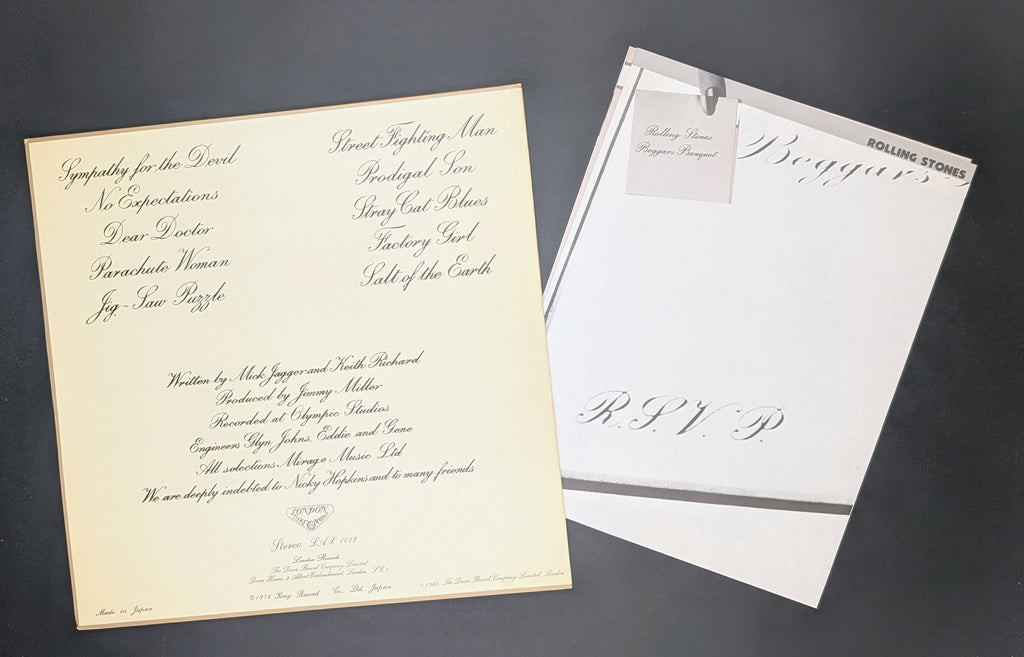 Sympathy for the Devil
No Expectations
Dear Doctor
Parachute Woman
Jig-Saw Puzzle
Street Fighting Man
Prodigal Son
Stray Cat Blues
Factory Girl
Salt of the Earth
Written by Mick Jagger and Keith Richard
Produced by Jimmy Miller
Recorded at Olympic Studios
Engineers Glyn Johns, Eddie and Gene
All selections Mirage Music Ltd
We are deeply indebted to Nicky Hopkins and to many friends
LONDON
Stereo LAX 1012
London Records
The Decca Record Company Limited
Decca House, 9 Albert Embankment, London, S.E.1
©1976 King Record Co., Ltd. Japan
Made in Japan
© 1968, The Decca Record Company Limited, London
Rolling Stones
Beggars Banquet
Beggars
ROLLING STONES
R.S.V.P.